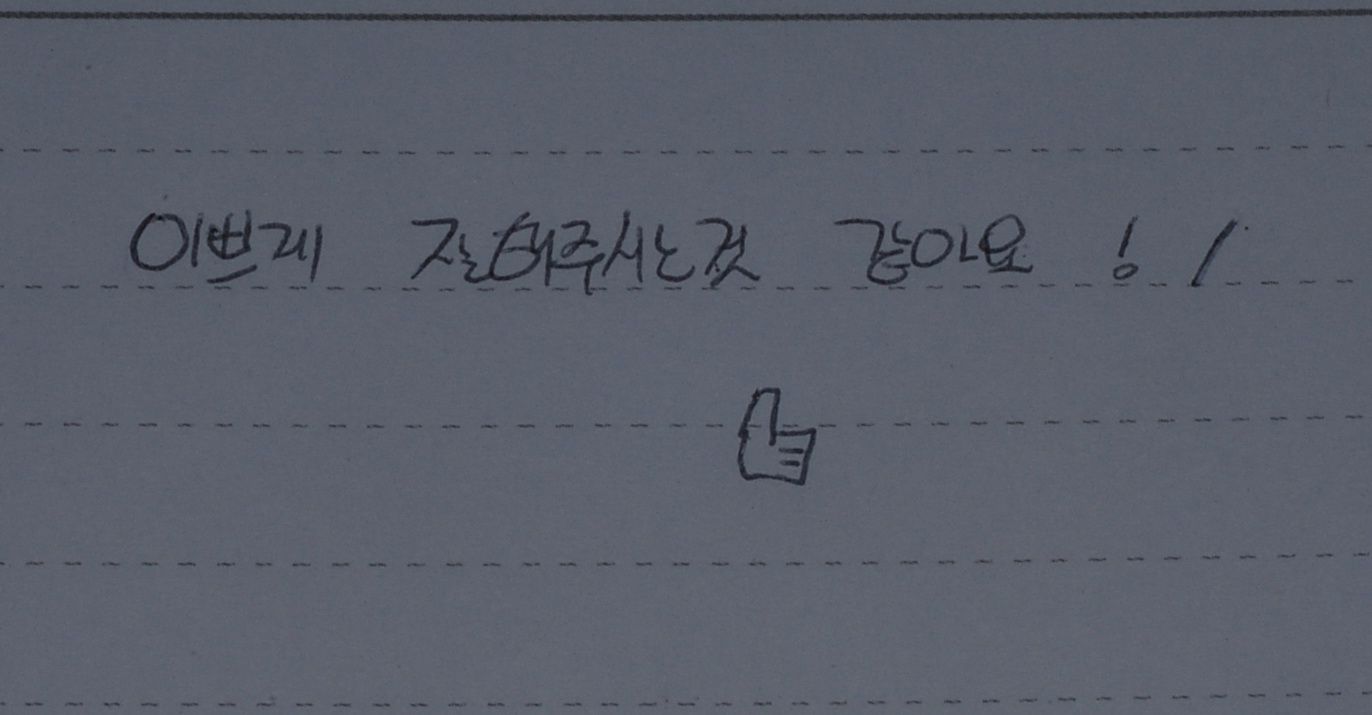 이쁘게 잘해주시는것 같아요! /